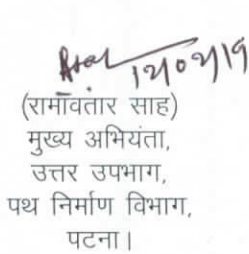 12/02/19
(रामॉवतार साह)
मुख्य अभियंता,
उत्तर उपभाग,
पथ निर्माण विभाग,
पटना।